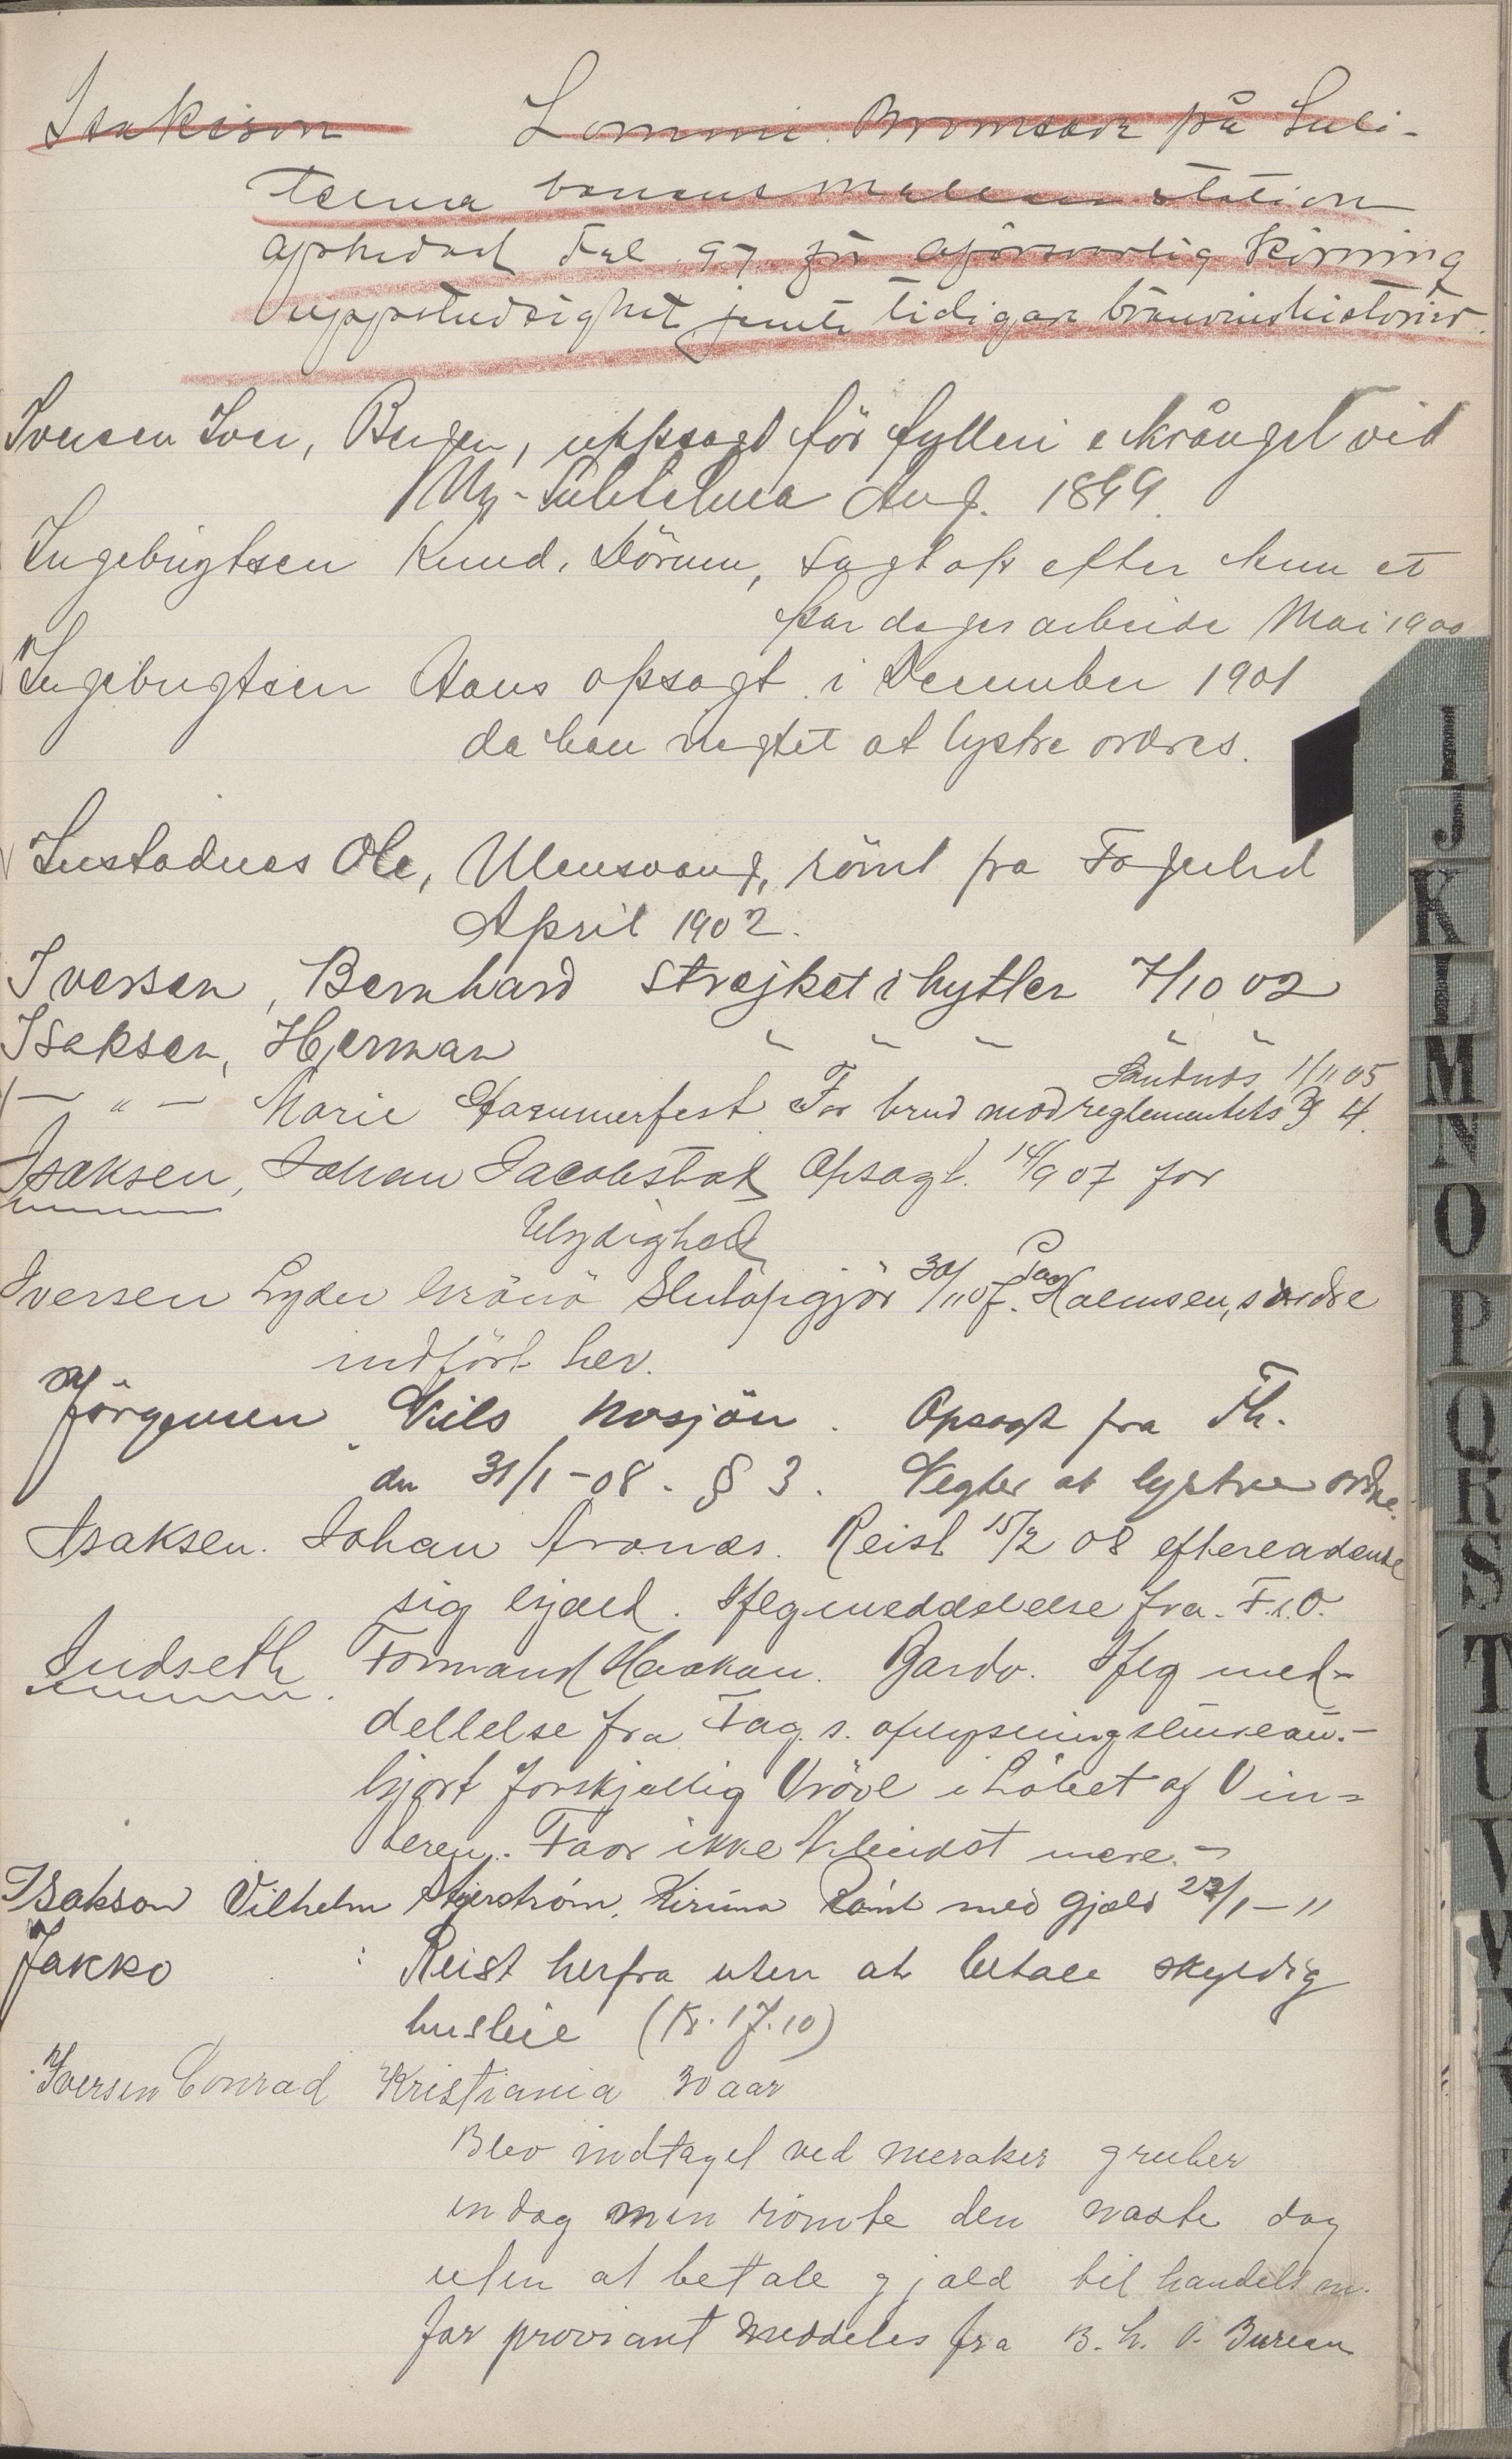 Isakison Lommi. Bromsare på Suli-
telma banans station
afskedad Feb. 97 för oförsvarlig körning
uppstudsighet jemte tidigare bränvinshistorier.
Iversen Iver, Bergen, uppsagd för fylleri o krångel vid
Ny-Sulitelma Aug. 1899.
Ingebrigtsen Knud, Börnm, sagt op efter kun et
par dages arbeide Mai 1900
Ingebrigtsen Hans opsagt i December 1901
da han negtet at lystre ordres.
Instadnes Ole, Ulensvang, römt fra Fagerlid
April 1902.
Iversen, Bernhard strejket i hytten 7/10 02
Isaksen, Hjerman " " " " "
Sandnäs 1/11 05
— " — Marie Hammerfest For brud mod reglementets § 4.
Isaksen, Johan Jacobstad Opsagt. 14/9 07 for
Ulydighed
Iversen Lyder Grönö Slutopgjör 30/11 07. Paa Haensen, s ordre
indfört her.
Jörgensen Nils Mosjöen. Opsagt fra Fh.
den 31/1-08. § 3. Negter at lystre ordre.
Isaksen. Johan Aronæs. Reist 15/2 08 efterladende
sig gjæld. Iflg meddelelse fra. F.s.O.
Indseth Formand Haakon. Bardo. Iflg med-
dellelse fra Fag. s. oplysningsbureau.-
Gjort forskjellig Vrövl i Löbet af Vin-
teren. Faar ikke Arbeidst mere.-
Isakson Vilhelm Stjerström. Kiruna Römt med gjæld 22/1-11
Jakko : Reist herfra uten at betale skyldig
husleie (Kr. 17.10)
Iversen Conrad Kristiania 30 aar
Blev indtaget ved Meraker gruber
en dag men römte den næste dag
uten at betale gjæld til handelsm.
for proviant Meddeles fra B. h. O. Bureau
I
J
K
L
M
N
O
P
Q
R
S
T
U
V
W